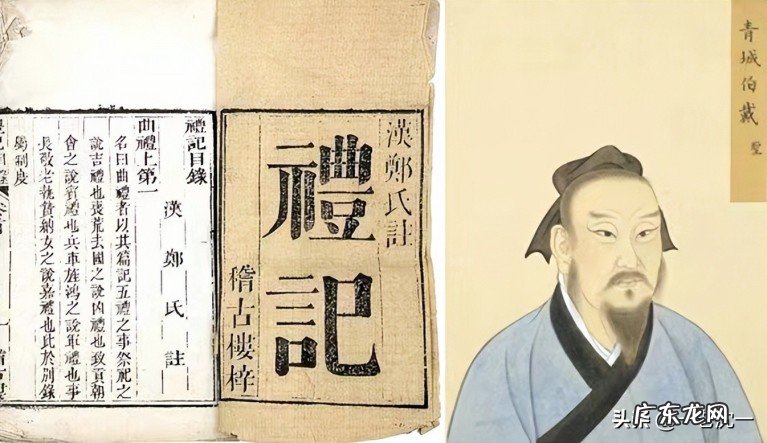 漢鄭氏註
禮記
稽古樓梓
禮記目錄
漢鄭氏註
曲禮上第一
名曰曲禮者以其篇記五禮之事祭祀之
說吉禮也喪荒去國之說凶禮也致貢朝
會之說賓禮也兵車旌鴻之說軍禮也事
長敬老執贄納女之說嘉禮也此於別錄
屬制度
青城伯戴聖
广东龙网